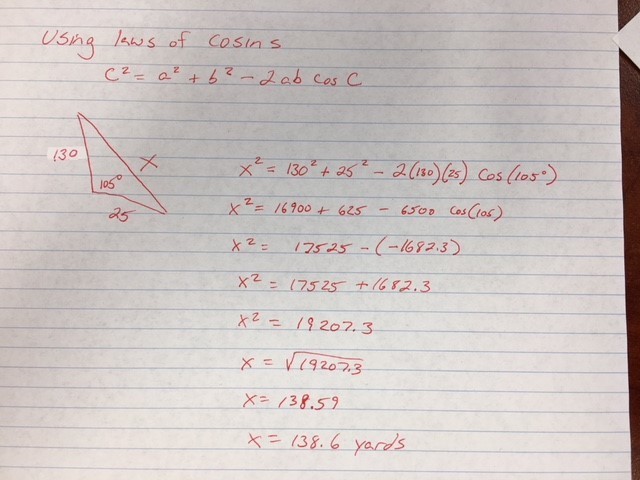 Using laws of cosins
c² = a² + b² - 2ab cos C
130
x
105°
25
x² = 130² + 25² - 2(130)(25) cos(105°)
x² = 16900 + 625 - 6500 cos(105)
x² = 17525 - (-1682.3)
x² = 17525 + 1682.3
x² = 19207.3
x = √19207.3
x = 138.59
x = 138.6 yards